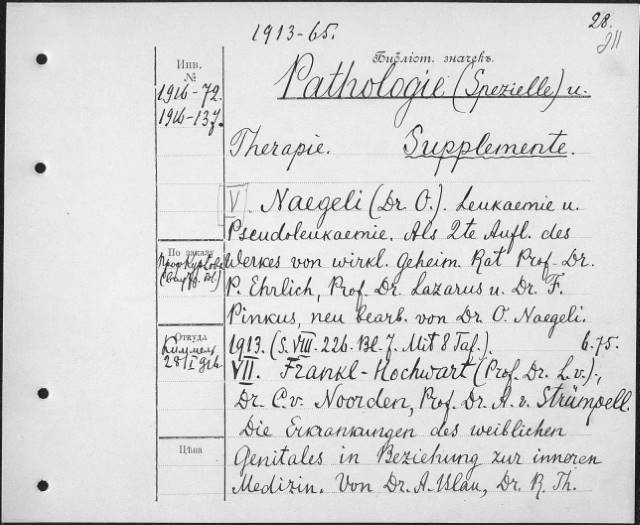 1913-65.
28.
211
Библіот. значекъ.
Инв.
№
1916-72.
1916-137.
Pathologie (Spezielle) u.
Therapie. Supplemente.
V. Naegeli (Dr. O.). Leukaemie u.
Pseudoleukaemie. Als 2te Aufl. des
По заказу
Werkes von wirkl. Geheim. Rat Prof. Dr.
P. Ehrlich, Prof. Dr. Lazarus u. Dr. F.
Pinkus, neu bearb. von Dr. O. Naegeli.
Откуда
1913. (S. VIII. 226. Bl. 7. Mit 8 Taf.). 6.75.
VII. Frankl-Hochwart (Prof. Dr. L. v.),
Dr. C. v. Noorden, Prof. Dr. A. v. Strümpell.
Die Erkrankungen des weiblichen
Цѣна
Genitales in Beziehung zur inneren
Medizin. Von Dr. A. Blau, Dr. R. Th.